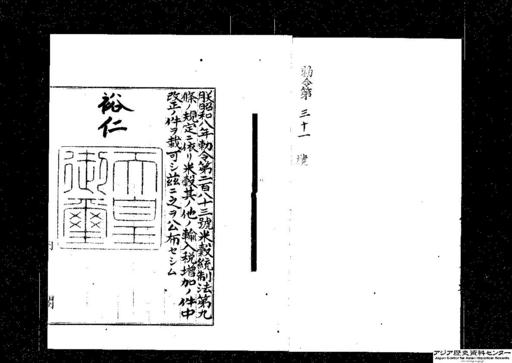 勅令第三十一號
朕昭和八年勅令第二百八十三號米穀統制法第九
條ノ規定ニ依リ米穀其ノ他ノ輸入税増加ノ件中
改正ノ件ヲ裁可シ茲ニ之ヲ公布セシム
裕仁
天皇御璽
アジア歴史資料センター
Japan Center for Asian Historical Records